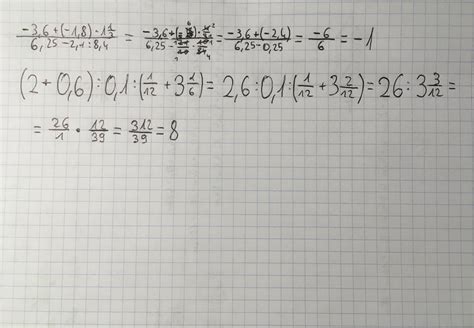 (-3,6+(-1,8)·1 1/3)/(6,25-2,1:8,4) = = (-3,6+(-2,4))/(6,25-0,25) = -6/6 = -1
(2+0,6):0,1:(1/12+3 1/6)=2,6:0,1:(1/12+3 2/12)=26:3 3/12=
= 26/1 · 12/39 = 312/39 = 8